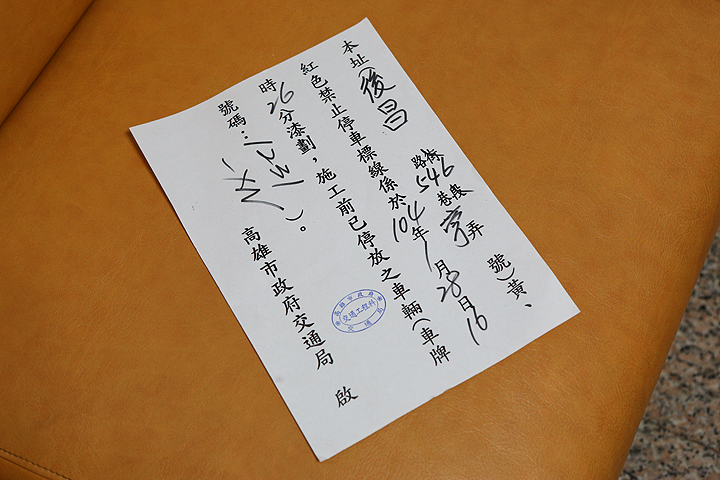 本址(後昌路街546巷段弄號)黃、
紅色禁止停車標線係於104年1月28日16
時26分漆劃，施工前已停放之車輛(車牌
號碼：)。
高雄市政府交通局 啟
高雄市政府
交通工程科
交通局